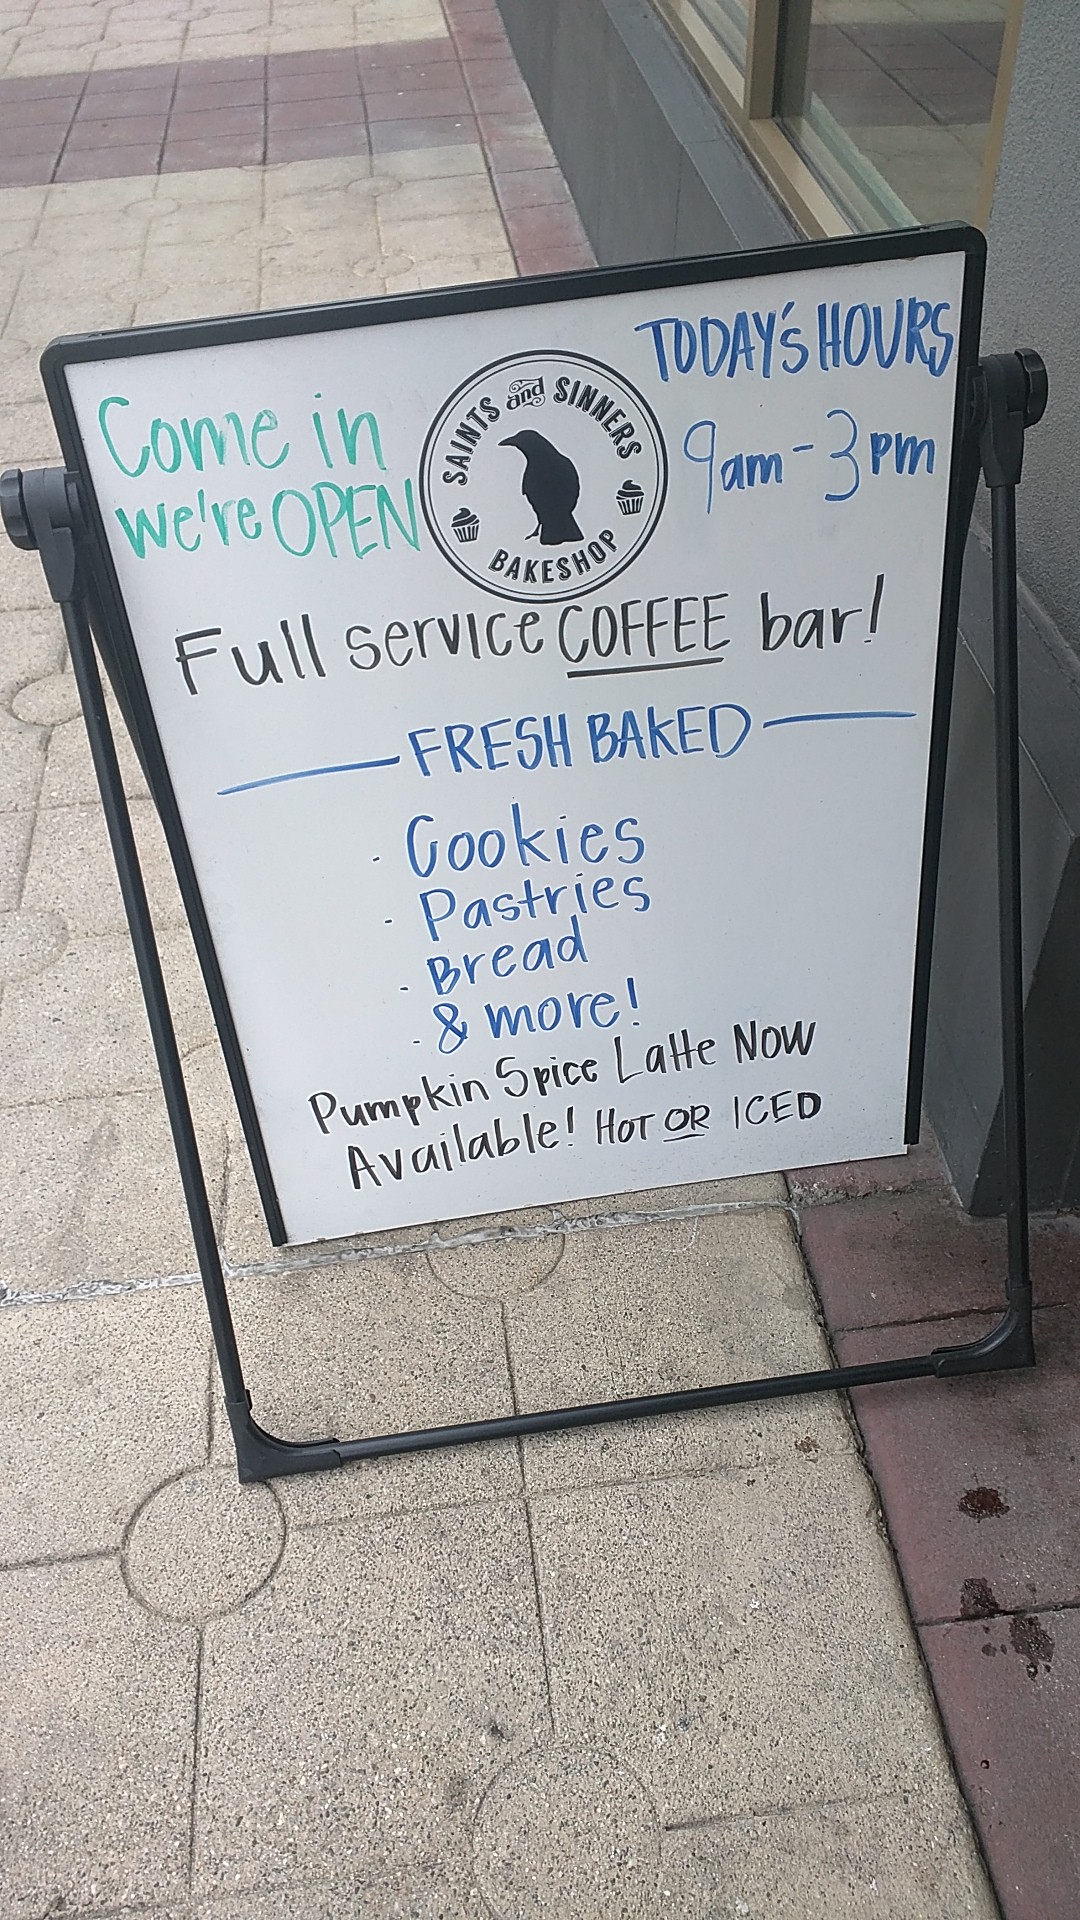 Come in
we're OPEN
SAINTS and SINNERS
BAKESHOP
TODAY'S HOURS
9am - 3pm
Full service COFFEE bar!
FRESH BAKED
· Cookies
· Pastries
· Bread
· & more!
Pumpkin Spice Latte NOW
Available! HOT OR ICED